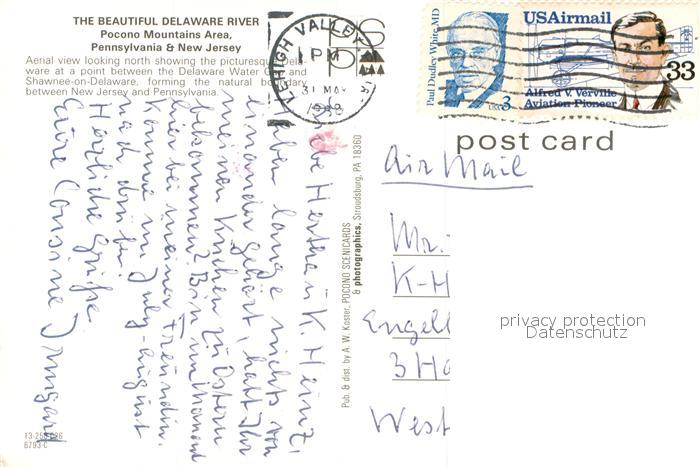 THE BEAUTIFUL DELAWARE RIVER
Pocono Mountains Area,
Pennsylvania & New Jersey
Aerial view looking north showing the picturesque Dela-
ware at a point between the Delaware Water Gap and
Shawnee-on-Delaware, forming the natural boundary
between New Jersey and Pennsylvania.
LEHIGH VALLEY
1 PM
31 MAY
Paul Dudley White MD
USA 3
USAirmail
33
Alfred V. Verville
Aviation Pioneer
post card
Air Mail
Mr.
K-H
Engel
3 Ha
West
privacy protection
Datenschutz
Liebe Hertha u. K. Heinz,
haben lange nichts von
einander gehört, habt Ihr
meinen Kuchen zu Ostern
bekommen? Bin im Moment
hier bei meiner Freundin.
Komme im July-August
nach dort bei.
Herzliche Grüße
Eure Cousine Irmgard
Pub. & dist. by A. W. Koster, POCONO SCENICARDS
& photographics, Stroudsburg, PA 18360
6793-C